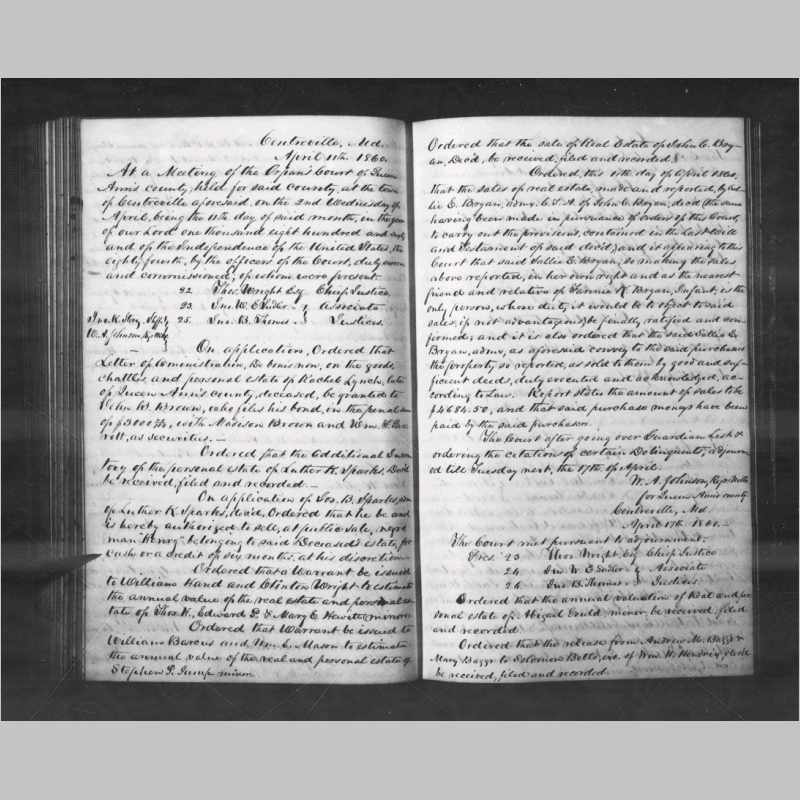 Centreville, Md.
April 11th 1860.
At a Meeting of the Orpan's Court of Queen
Ann's county, held for said county, at the town
of Centreville aforesaid, on the 2nd Wednesday of
April, being the 11th day of said month, in the year
of our Lord one thousand eight hundred and sixty
and of the Independence of the United States, the
eighty fourth, by the officers of the Court, duly sworn
and commissioned; of whom were present.
22. Thos. Wright Esq Chief Justice
23. Jno. W. E. Sudler } Associate
25. Jno. B. Thomas } Justices
W. A. Johnson, Reg. Wills
On application, Ordered that
Letter of Administration, De bonis non, on the goods,
chattles, and personal estate of Rachel Lynch, late
of Queen Ann's county, deceased, be granted to
John W. Brown, who files his bond, in the penal sum
of $3000, with Madison Brown and Wm.
as securities.
Ordered that the Additional Inven-
tory of the personal estate of Luther K. Sparks, Dec'd
be received, filed and recorded.
On application of Jos. B. Sparks,
of Luther K. Sparks, dec'd, Ordered that he be and
is hereby authorized to sell, at public sale, negro
man "Henry" belonging to said Deceased's estate, for
cash or a credit of six months, at his discretion
Ordered that a Warrant be issued
to William Hand and Clinton Wright to estimate
the annual value of the real estate and personal es-
tate of Thos. K., Edward P. & Mary E. Hewitt, minors
Ordered that Warrant be issued to
William Barcus and Wm. E. Mason to estimate
the annual value of the real and personal estate of
Stephen P. Jump minor
Ordered that the sale of Real Estate of John C. Bry-
an, Dec'd, be received, filed and recorded
Ordered, this 11th day of April 1860,
that the sales of real estate, made and reported, by Sal-
lie E. Bryan, admx. C.T.A. of John C. Bryan, dec'd (the same
having been made in pursuance of orders of this Court,
to carry out the provisions, contained in the last Will
and Testament of said dec'd,) and it appearing to this
Court that said Sallie E. Bryan, so making the sales
above reported, in her own right and as the nearest
friend and relative of Fannie K. Bryan, Infant, is the
only person, whose duty it would be to object to said
sales, if not advantageous, be finally ratified and con-
firmed; and it is also ordered that the said Sallie E.
Bryan, admx, as aforesaid convey to the said purchasers
the property so reported, as sold to them by good and suf-
ficient deeds, duly executed and acknowledged, ac-
cording to law. Report states the amount of sales to be
$4684.50, and that said purchase moneys have been
paid by the said purchasers.
The Court after going over Guardian List &
ordering the citations of certain Delinquents, adjourn-
ed till Tuesday next, the 17th of April.
W. A. Johnson, Reg. Wills
for Queen Ann's county
Centreville, Md
April 17th 1860.
The Court met pursuant to adjournment.
Pres. 23 Thos. Wright, Esq Chief Justice
24 Jno W. E. Sudler } Associate
26 Jno B. Thomas } Justices
Ordered that the annual valuation of Real and per-
sonal estate of Abigail Gould minor be received, filed
and recorded
Ordered that the release from Andrew M. Baggs &
Mary Baggs to Solomon Betts, exc. of Wm. H. Hendrix,
be received, filed and recorded.